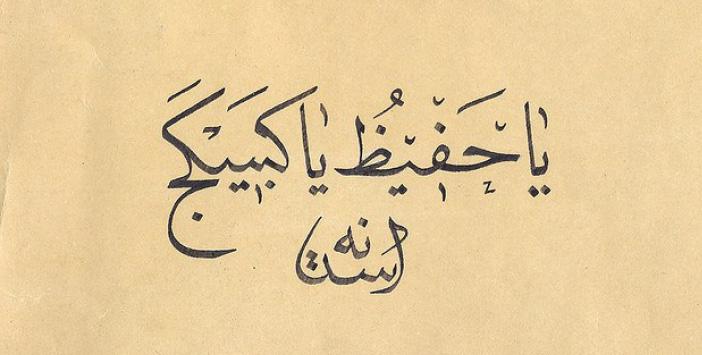 يا حَفِيظُ يا كَبِيكَج
استانه